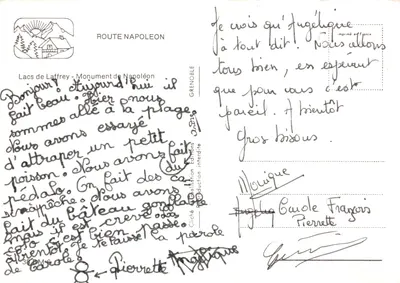 ROUTE NAPOLEON
Lacs de Laffrey - Monument de Napoléon
Bonjour! Aujourd'hui il
fait beau. Hier nous
sommes allé à la plage.
Nous avons essayé
d'attraper un petit
poisson. Nous avons fait
du
pédalo. On fait des ca
Nous avons
fait du bâteau gonflable
mais il est crevé
bien passé.
je te laisse la parole
de Carole.
Pierrette Angélique
GRENOBLE
Je crois qu'Angélique
à tout dit! Nous allons
tous bien, en espérant
que pour vous c'est
pareil. A bientôt
Gros bisous.
Monique
Carole François
Pierrette